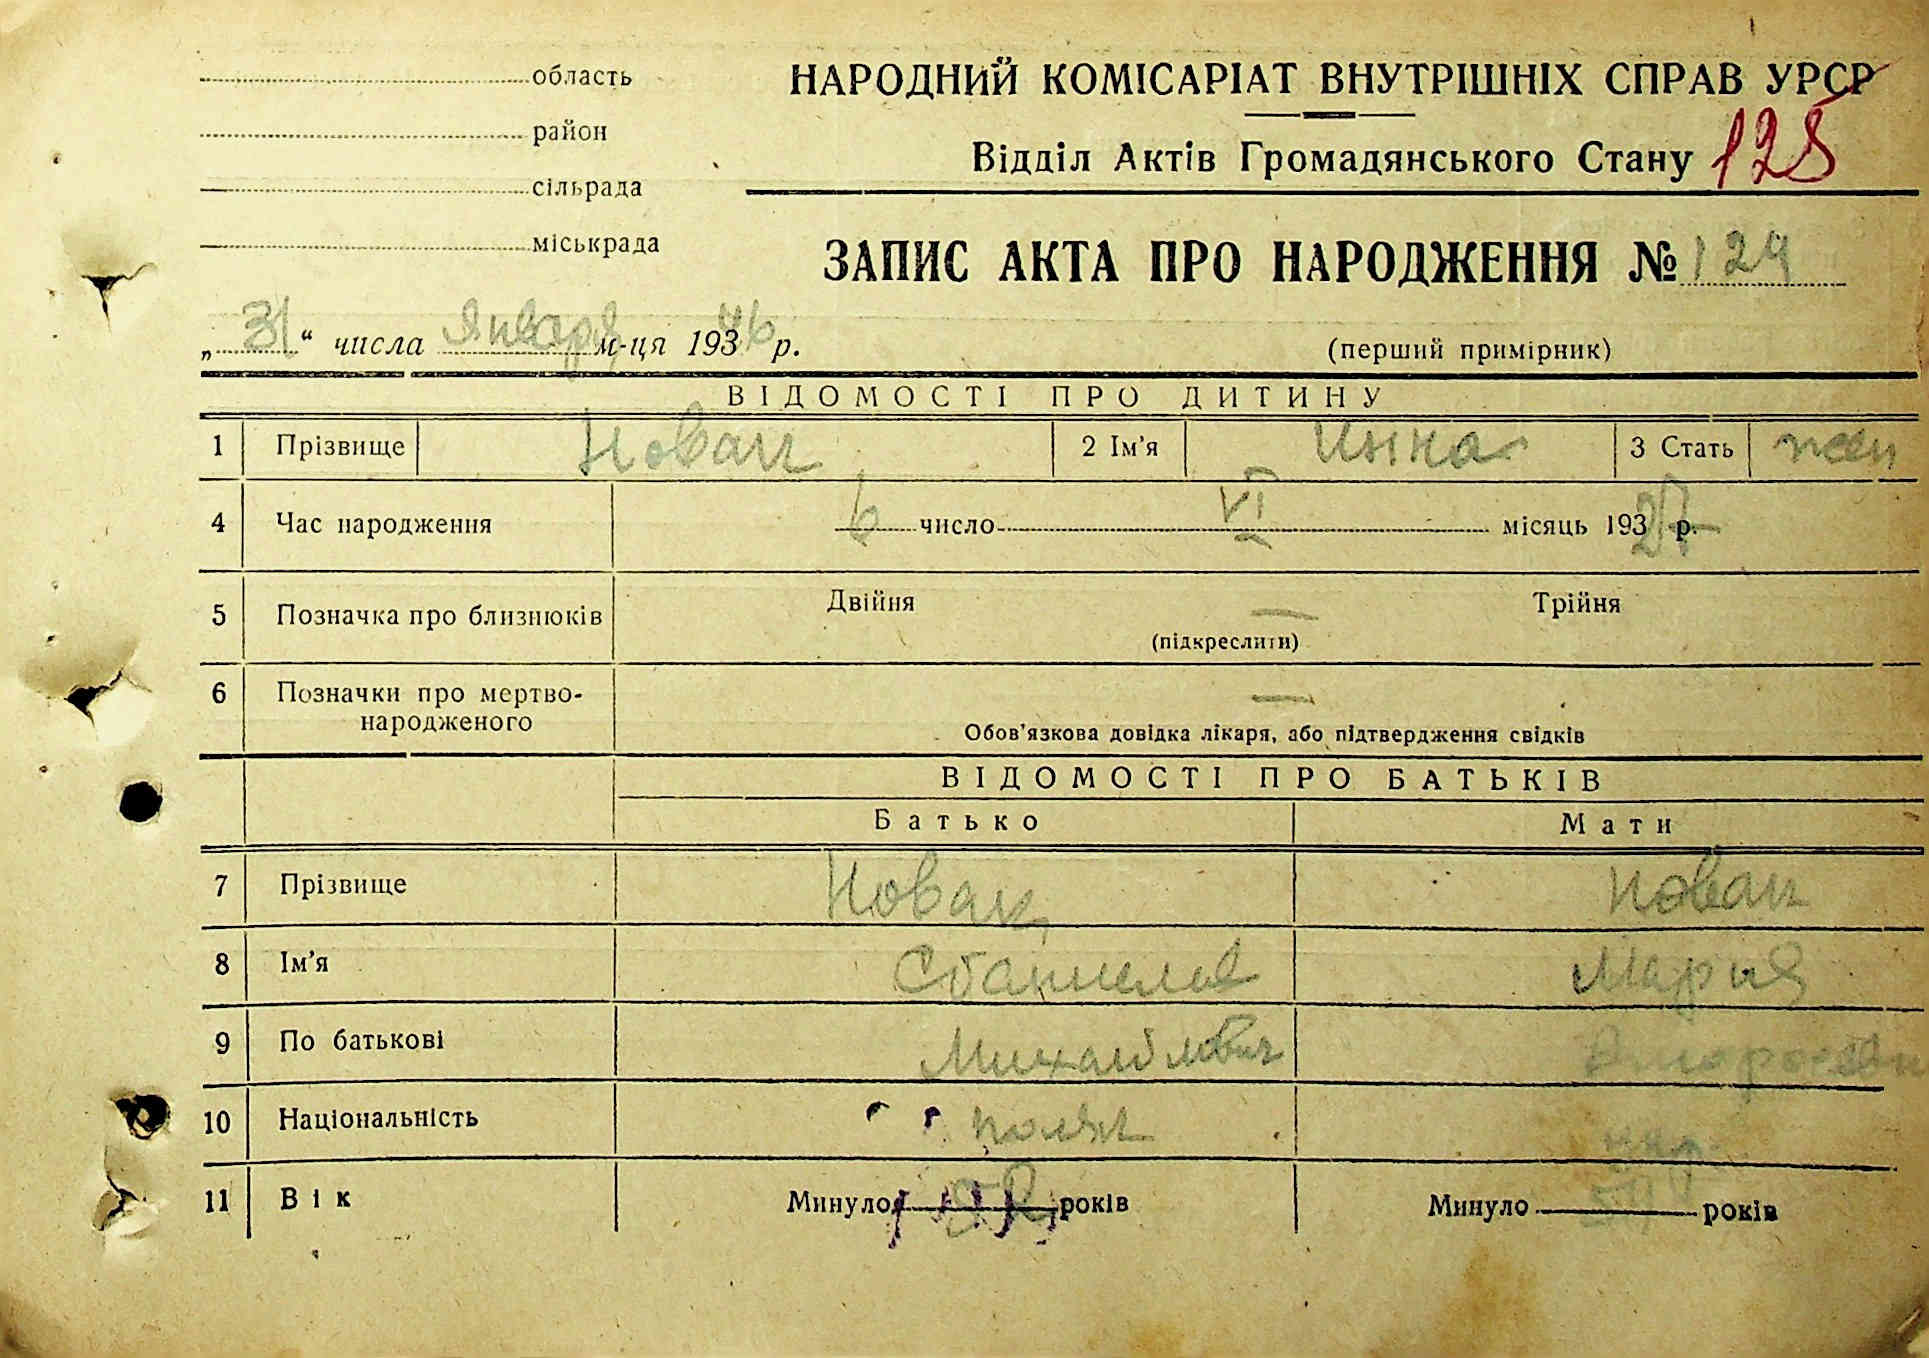 область
район
сільрада
міськрада
НАРОДНИЙ КОМІСАРІАТ ВНУТРІШНІХ СПРАВ УРСР
Відділ Актів Громадянського Стану 125
ЗАПИС АКТА ПРО НАРОДЖЕННЯ № 124
„31“ числа января м-ця 1946 р.
(перший примірник)
ВІДОМОСТІ ПРО ДИТИНУ
1 Прізвище Новак 2 Ім'я Инна 3 Стать жен
4 Час народження 6 число VI місяць 1927 р.
5 Позначка про близнюків Двійня — Трійня
(підкреслити)
6 Позначки про мертво-
народженого —
Обов'язкова довідка лікаря, або підтвердження свідків
ВІДОМОСТІ ПРО БАТЬКІВ
Батько Мати
7 Прізвище Новак Новак
8 Ім'я Станислав Мария
9 По батькові Михайлович
10 Національність поляк укр.
11 Вік Минуло 52 років Минуло років